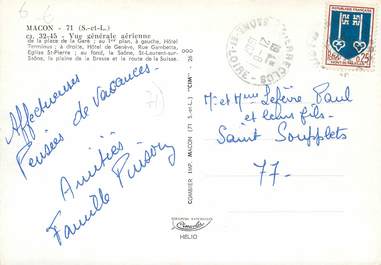 MACON - 71 (S.-et-L.)
cp. 32-45 - Vue générale aérienne
de la place de la Gare ; au 1er plan, à gauche, Hôtel
Terminus ; à droite, Hôtel de Genève, Rue Gambetta,
Eglise St-Pierre ; au fond, la Saône, St-Laurent-sur-
Saône, la plaine de la Bresse et la route de la Suisse.
Affectueuses
Pensées de Vacances.
Amitiés
Famille
COMBIER IMP. MACON (71 S.-et-L.) "CIM"
HELIO
M. et Mme Lefèvre Paul
et leurs fils.
Saint Soupplets
77.